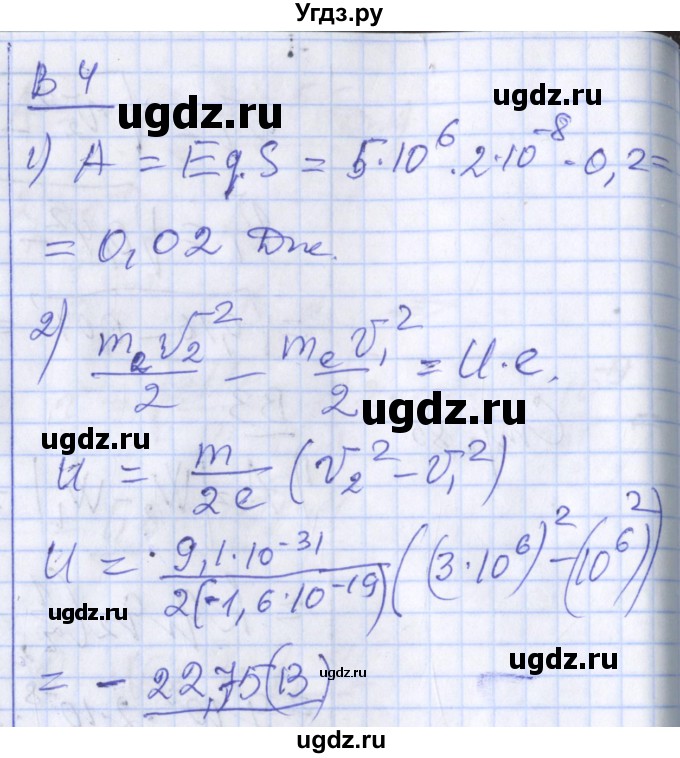 Угдз.ру
В 4
ugdz.ru
1) A = EqS = 5·10⁶·2·10⁻⁸·0,2=
= 0,02 Дж.
2) mₑv₂²/2 - mₑv₁²/2 = U·e.
ugdz.ru
ugdz.ru
U = m/2e (v₂² - v₁²)
U = 9,1·10⁻³¹/2(-1,6·10⁻¹⁹) ((3·10⁶)² - (10⁶)²)
ugdz.ru
ugdz.ru
= - 22,75(В)
ugdz.ru
ugdz.ru